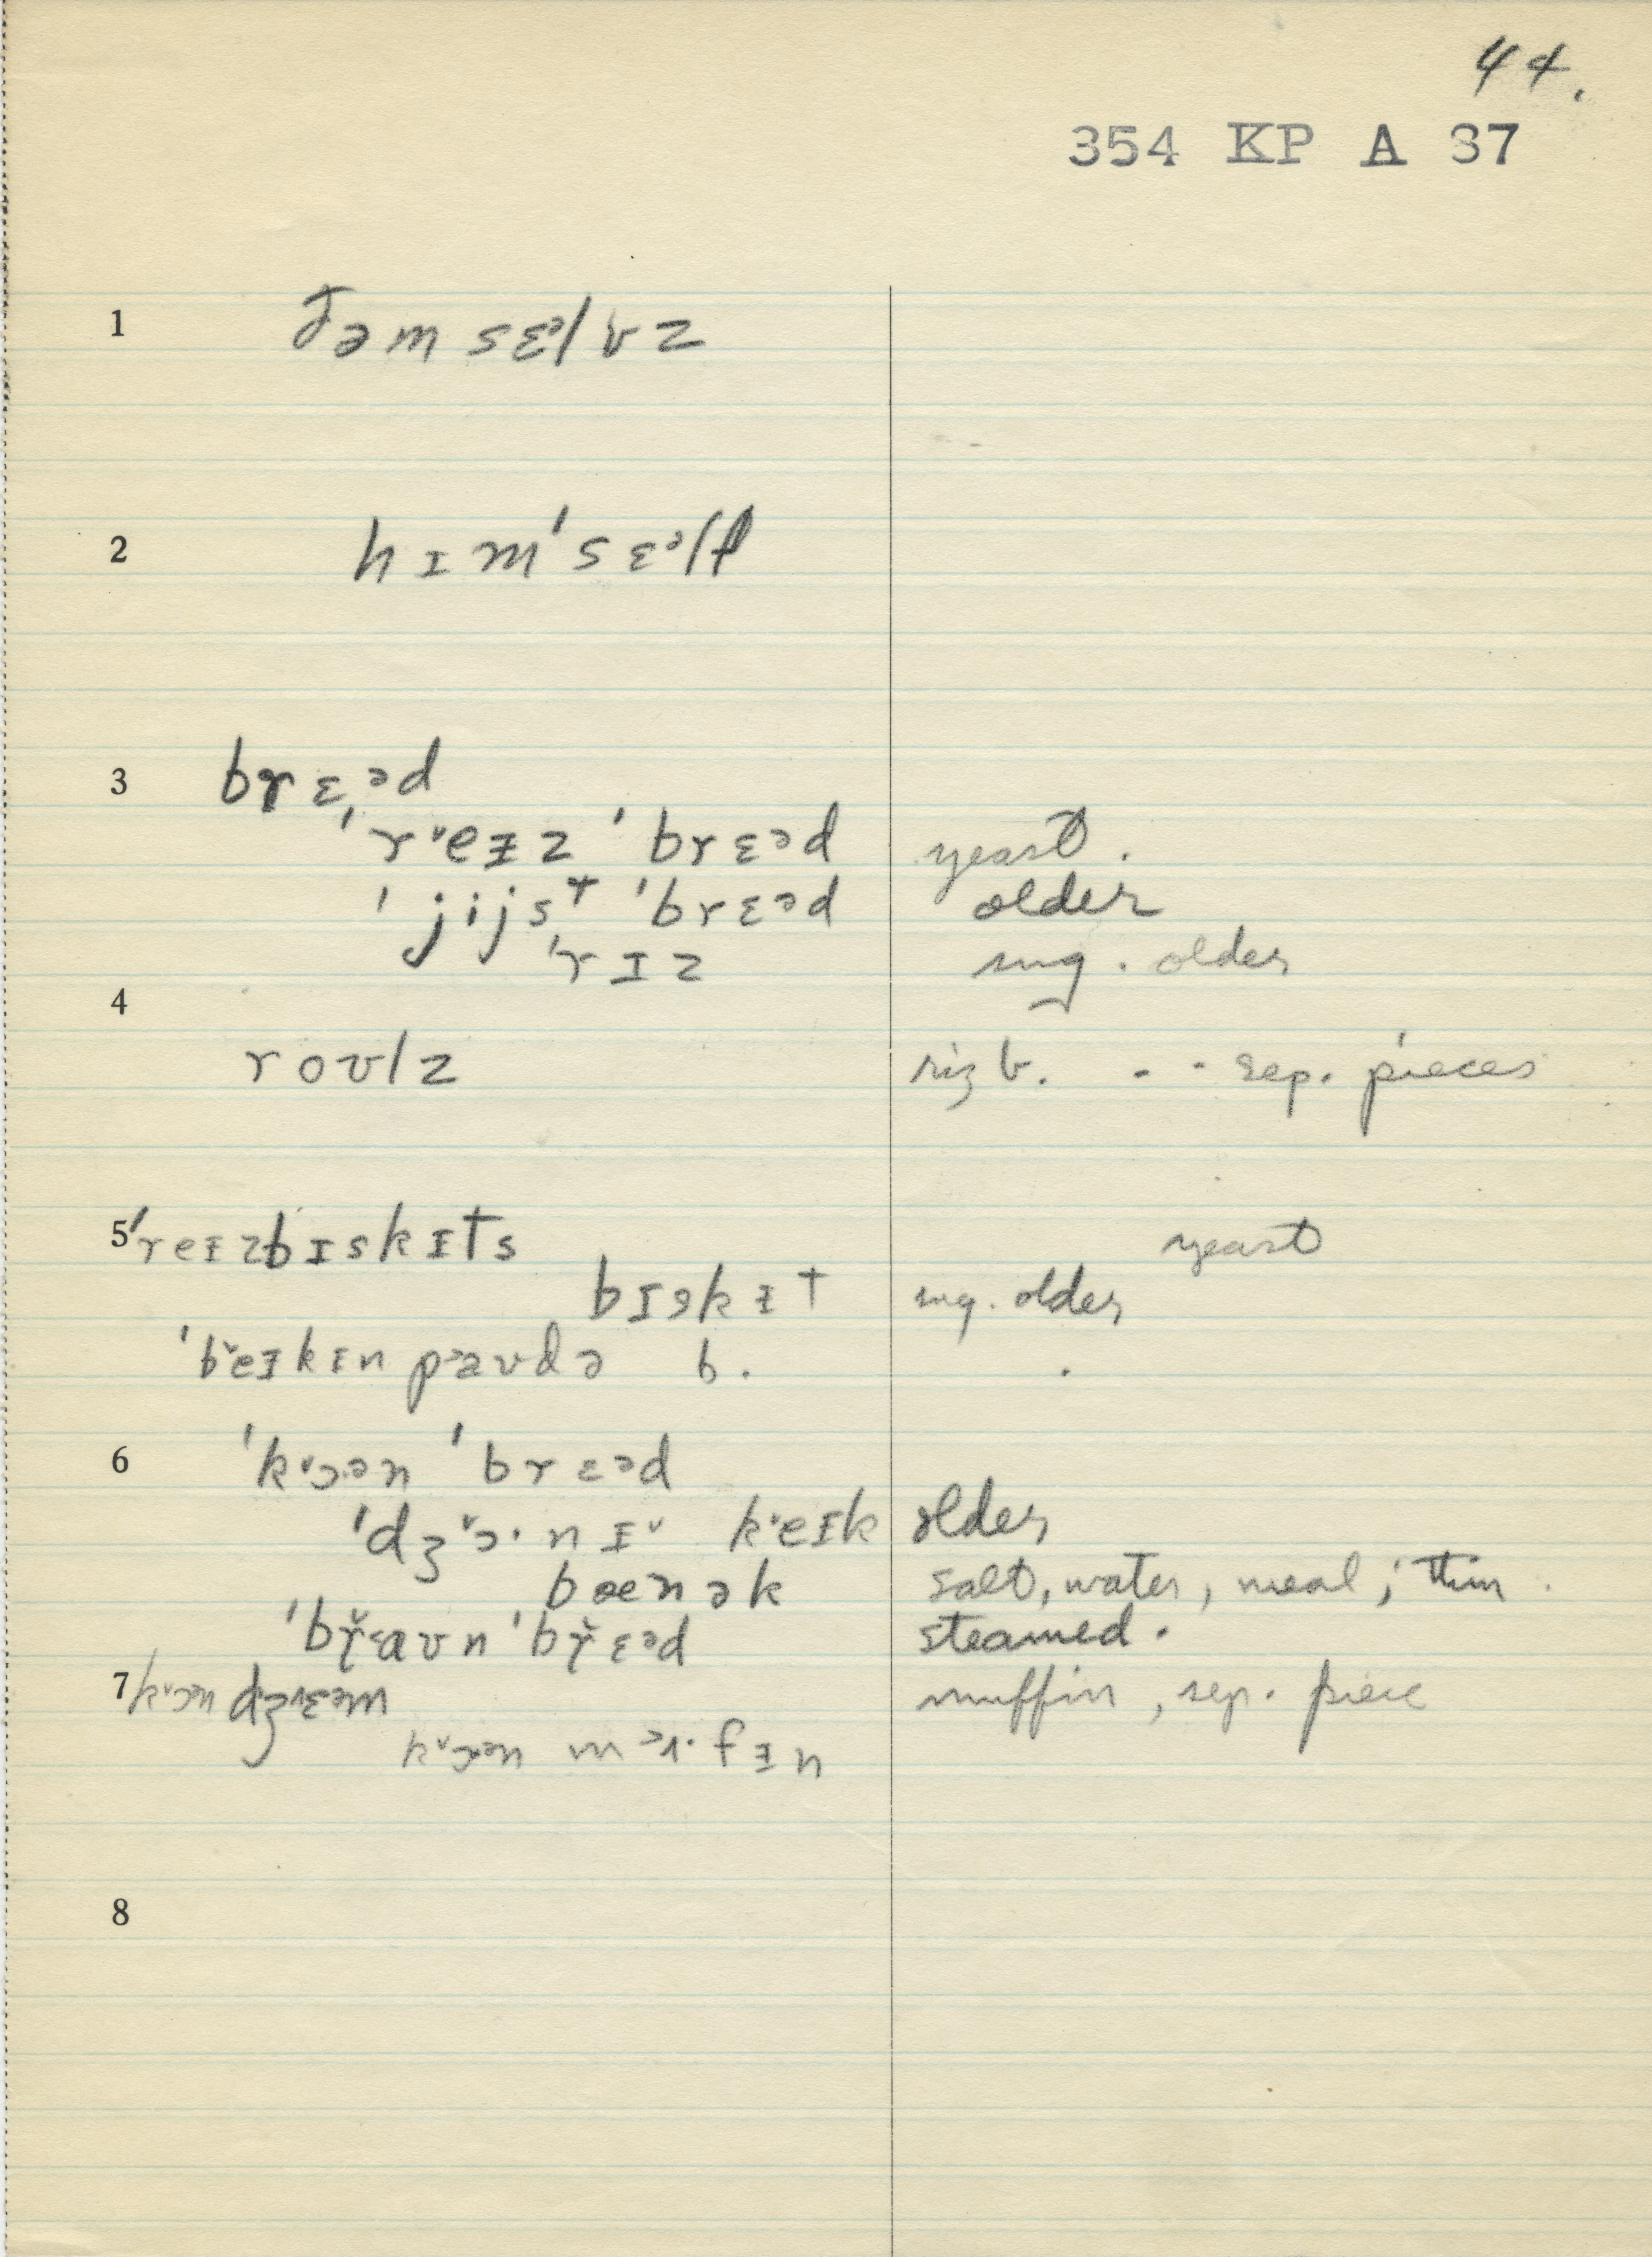 44.
354 KP A 37
1 ðəmsɛᵊlvz
2 hɪm'sɛᵊlf
3 brɛᵊd
'rᵛeɪz 'brɛᵊd yeast.
'jijsᵗ 'brɛᵊd older
'rɪz sug. older
4
roʊlz riz b. - - sep. pieces
5 'reɪzbɪskɪts yeast
bɪskɪt sug. older
'beɪkɪn paʊdə b. .
6 'kᵛɔən 'brɛᵊd
'dʒᵛɔ·nɪᵛ kᵛeɪk older
bænək salt, water, meal; thin.
'br̆aʊn 'br̆ɛᵊd steamed.
7 kᵛɔən dʒɛəm muffin, sep. piece
kᵛɔən mɜ·fɪn
8